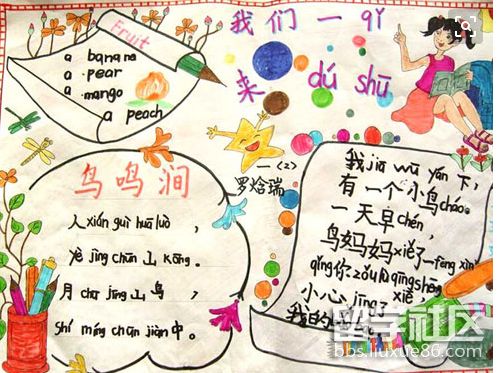 我们一qǐ
来 dú shū
Fruit
a banana
a pear
a mango
a peach
鸟鸣涧
人xián guì huā luò，
yè jìng chūn 山 kōng。
月chū jīng 山 鸟，
shí míng chūn jiàn 中。
一（2）
罗焓瑞
我jiā wū yán 下，
有一个小鸟cháo。
一天早chén
鸟妈妈xiě了一fēng xìn
qǐng你zǒu lù qīng shēng
小心 xiē，
我的
留学社区
bbs.liuxue86.com